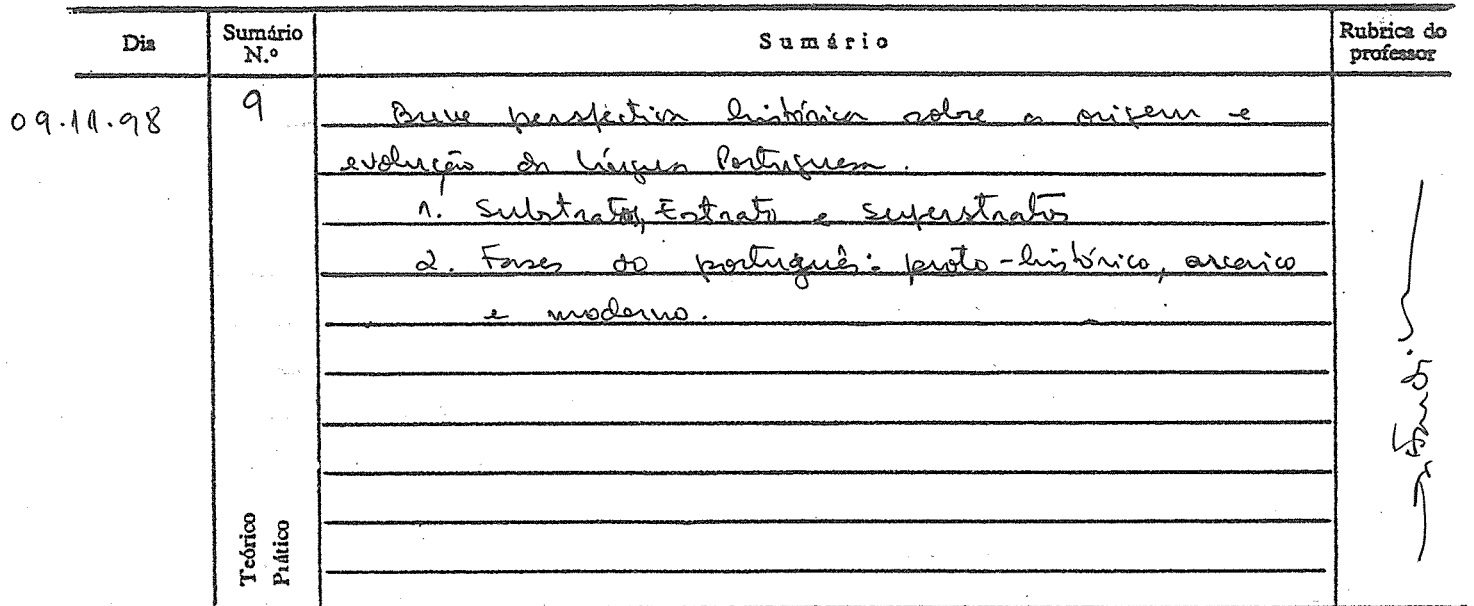 Dia Sumário N.º Sumário Rubrica do professor
09.11.98 9 Breve perspectiva histórica sobre a origem e
evolução da Língua Portuguesa.
1. Substratos, Estrato e superstratos
2. Fases do português: proto-histórico, arcaico
e moderno.
Teórico
Prático